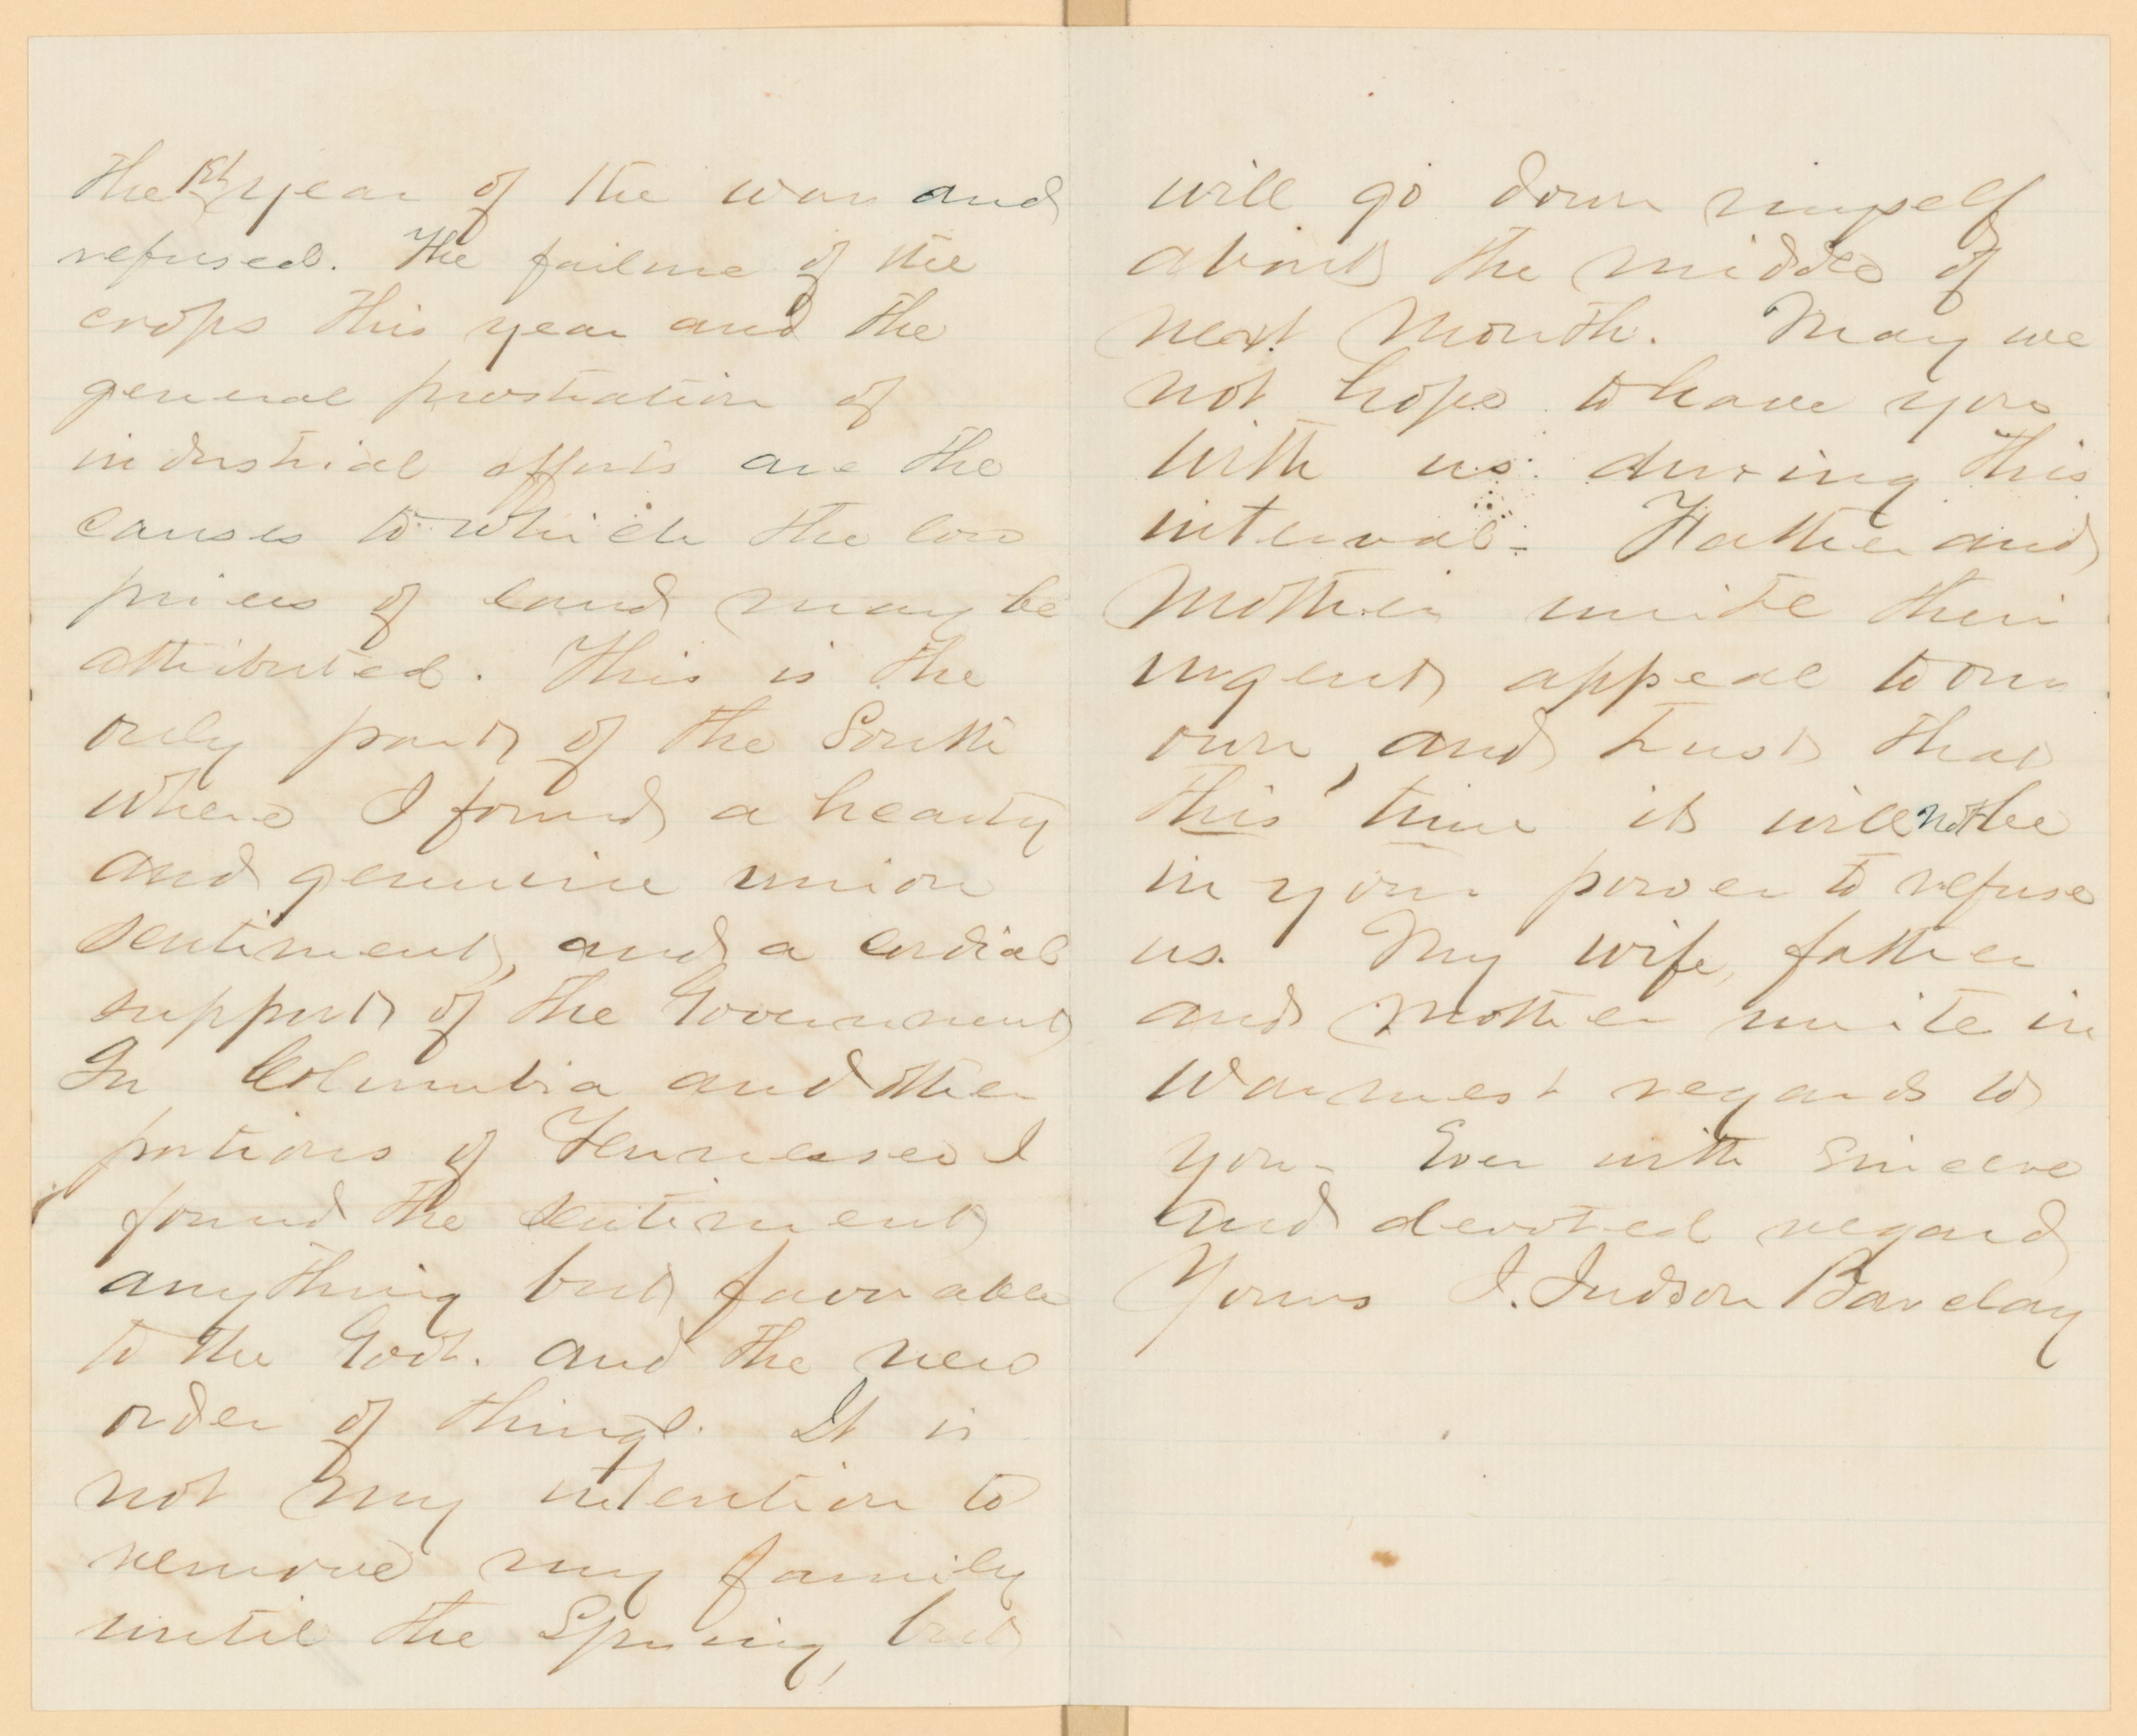 the 1st year of the war and
refused. The failure of the
crops this year and the
general prostration of
industrial efforts are the
causes to which the low
prices of land may be
attributed. This is the
only part of the South
where I found a hearty
and genuine union
sentiment, and a cordial
support of the Government
In Columbia and other
portions of Tennessee I
found the sentiment
anything but favorable
to the Govt. and the new
order of things. It is
not my intention to
remove my family
until the Spring, but
will go down myself
about the middle of
next month. May we
not hope to have you
with us during this
interval- Father and
Mother unite their
urgent appeal to our
own, and trust that
this time it will not be
in your power to refuse
us. My wife, father
and Mother unite in
warmest regards to
you- Ever with sincere
and devoted regard
Yours J. Judson Barclay